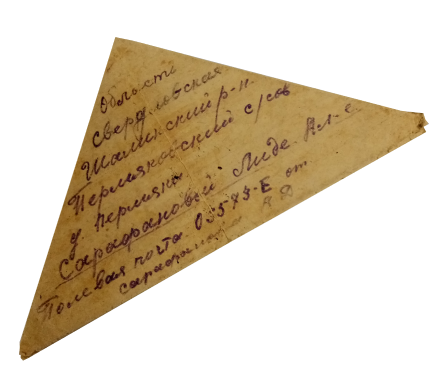 Область
Свердловская
Шалинский р-н.
Пермяковский с/сов
д Пермяки
Сарафановой Лиде Вл-е
Полевая почта 03573-Е от
Сарафанова